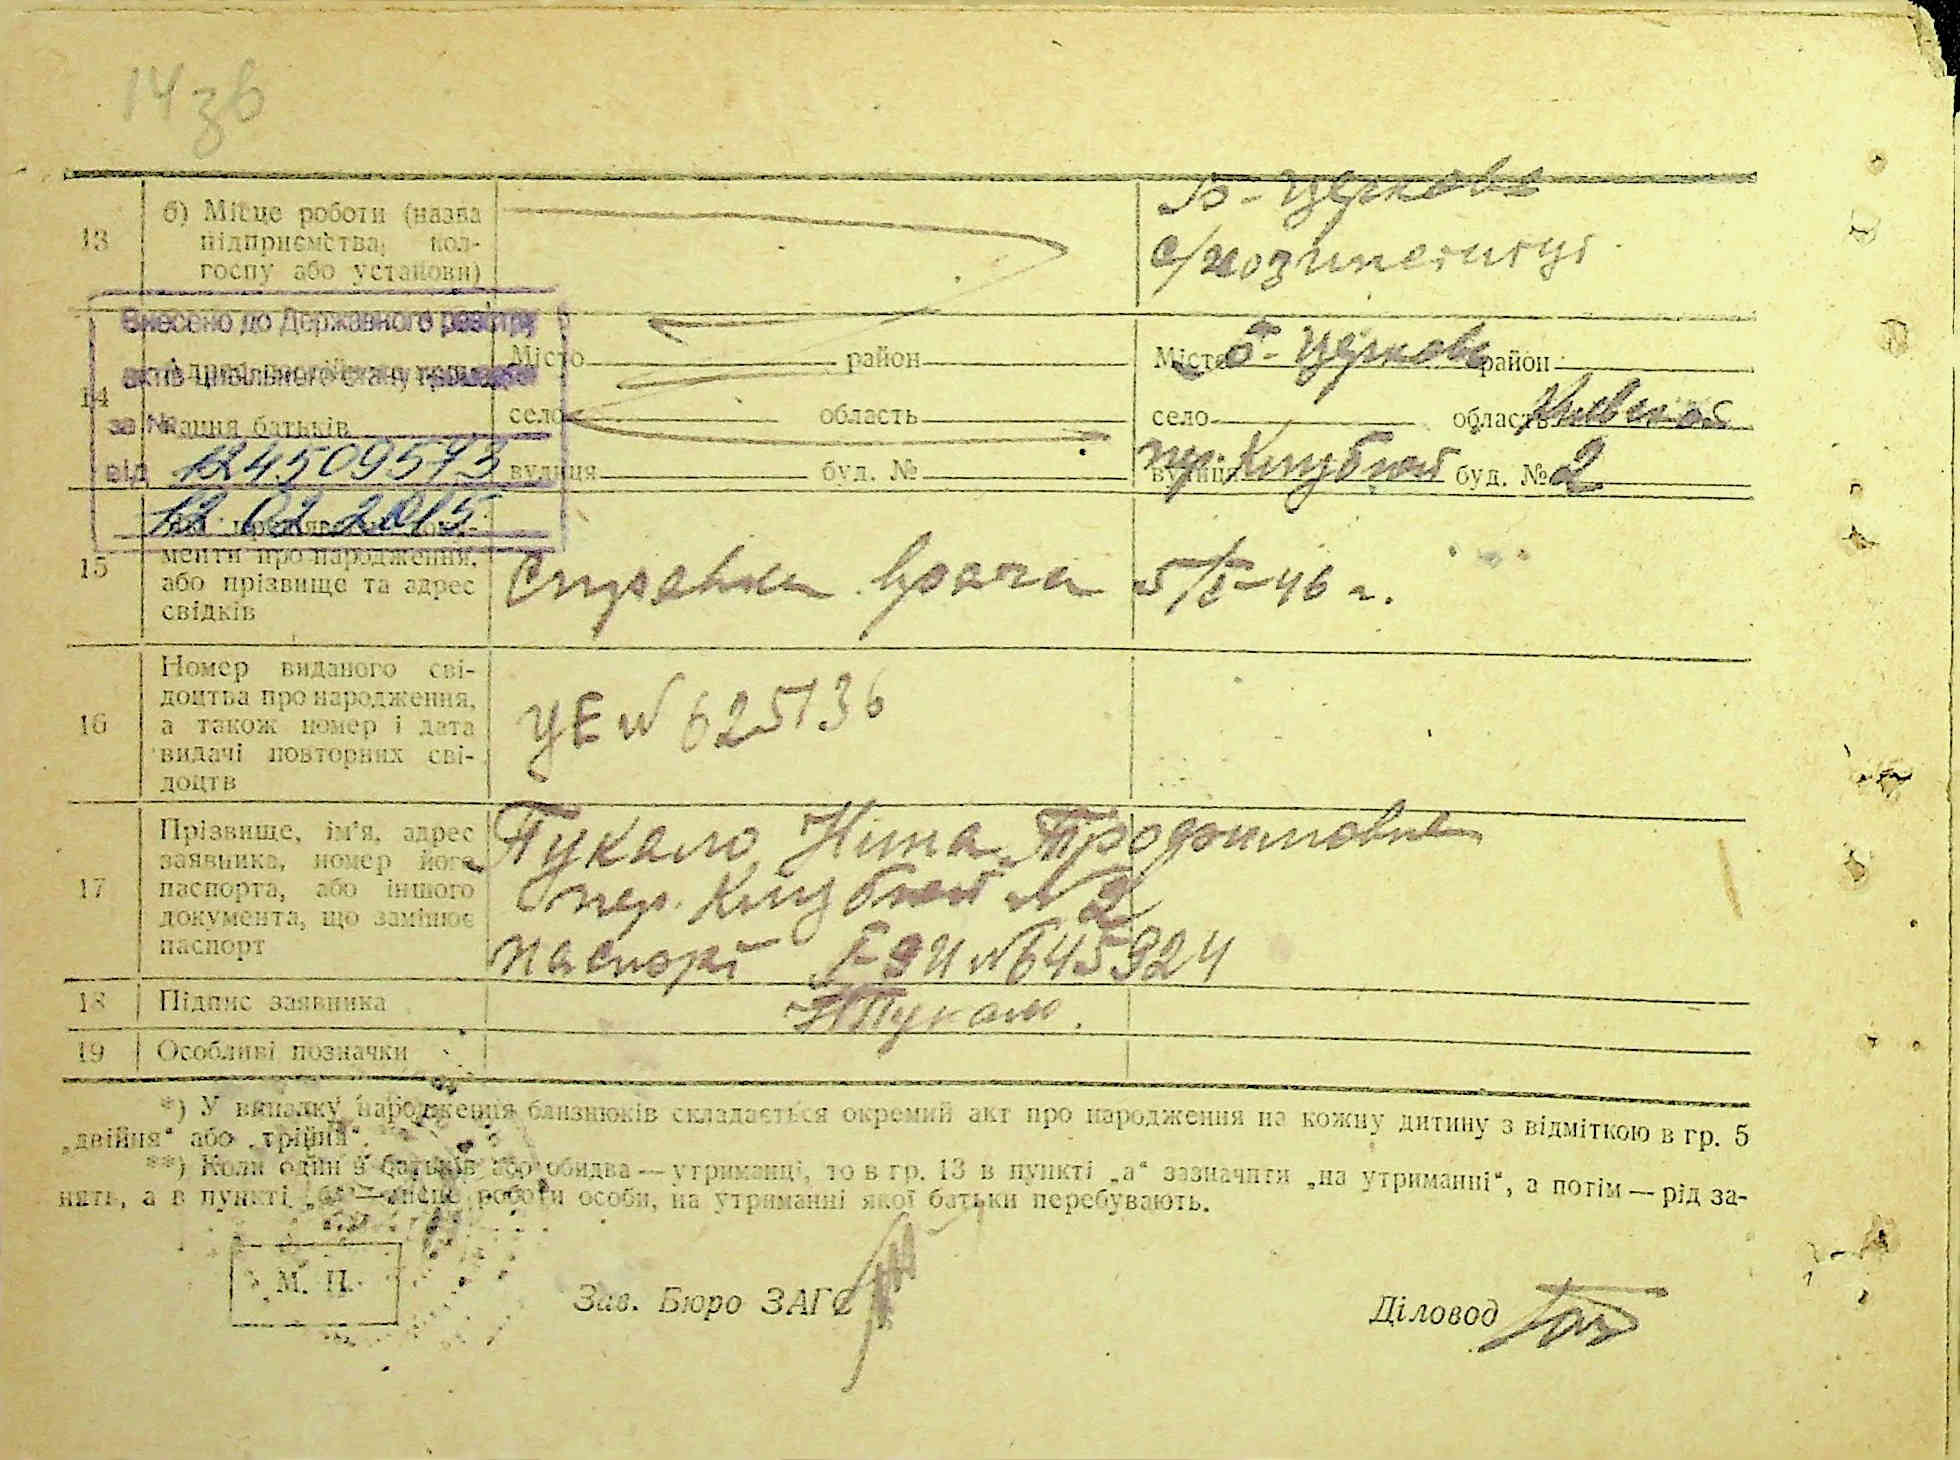 14 зв
13 б) Місце роботи (назва підприємства, кол-госпу або установи) Б-Церковь
с/хозинститут
Внесено до Державного реєстру
актів цивільного стану громадян
за №
від 124509573
12 02 2015
14 Місто район Місто Б-Церковь район
ання батьків село область село область Киевская
вулиця буд. № вулиця пер. Клубной буд. № 2
15 менти про народження, або прізвище та адрес свідків Справка врача 5/I-46 г.
16 Номер виданого сві-доцтва про народження, а також номер і дата видачі повторних сві-доцтв УЕ N 625136
17 Прізвище, ім'я, адрес заявника, номер його паспорта, або іншого документа, що замінює паспорт Пукало Нина Трофимовна
пер. Клубной N 2
паспорт N 645924
18 Підпис заявника НПукало.
19 Особливі позначки
*) У випадку народження близнюків складається окремий акт про народження на кожну дитину з відміткою в гр. 5
„двійня“ або „трійня“.
**) Коли один з батьків або обидва — утриманці, то в гр. 13 в пункті „а“ зазначити „на утриманні“, а потім — рід за-
нять, а в пункті „б“ — місце роботи особи, на утриманні якої батьки перебувають.
М. П.
Зав. Бюро ЗАГС Діловод